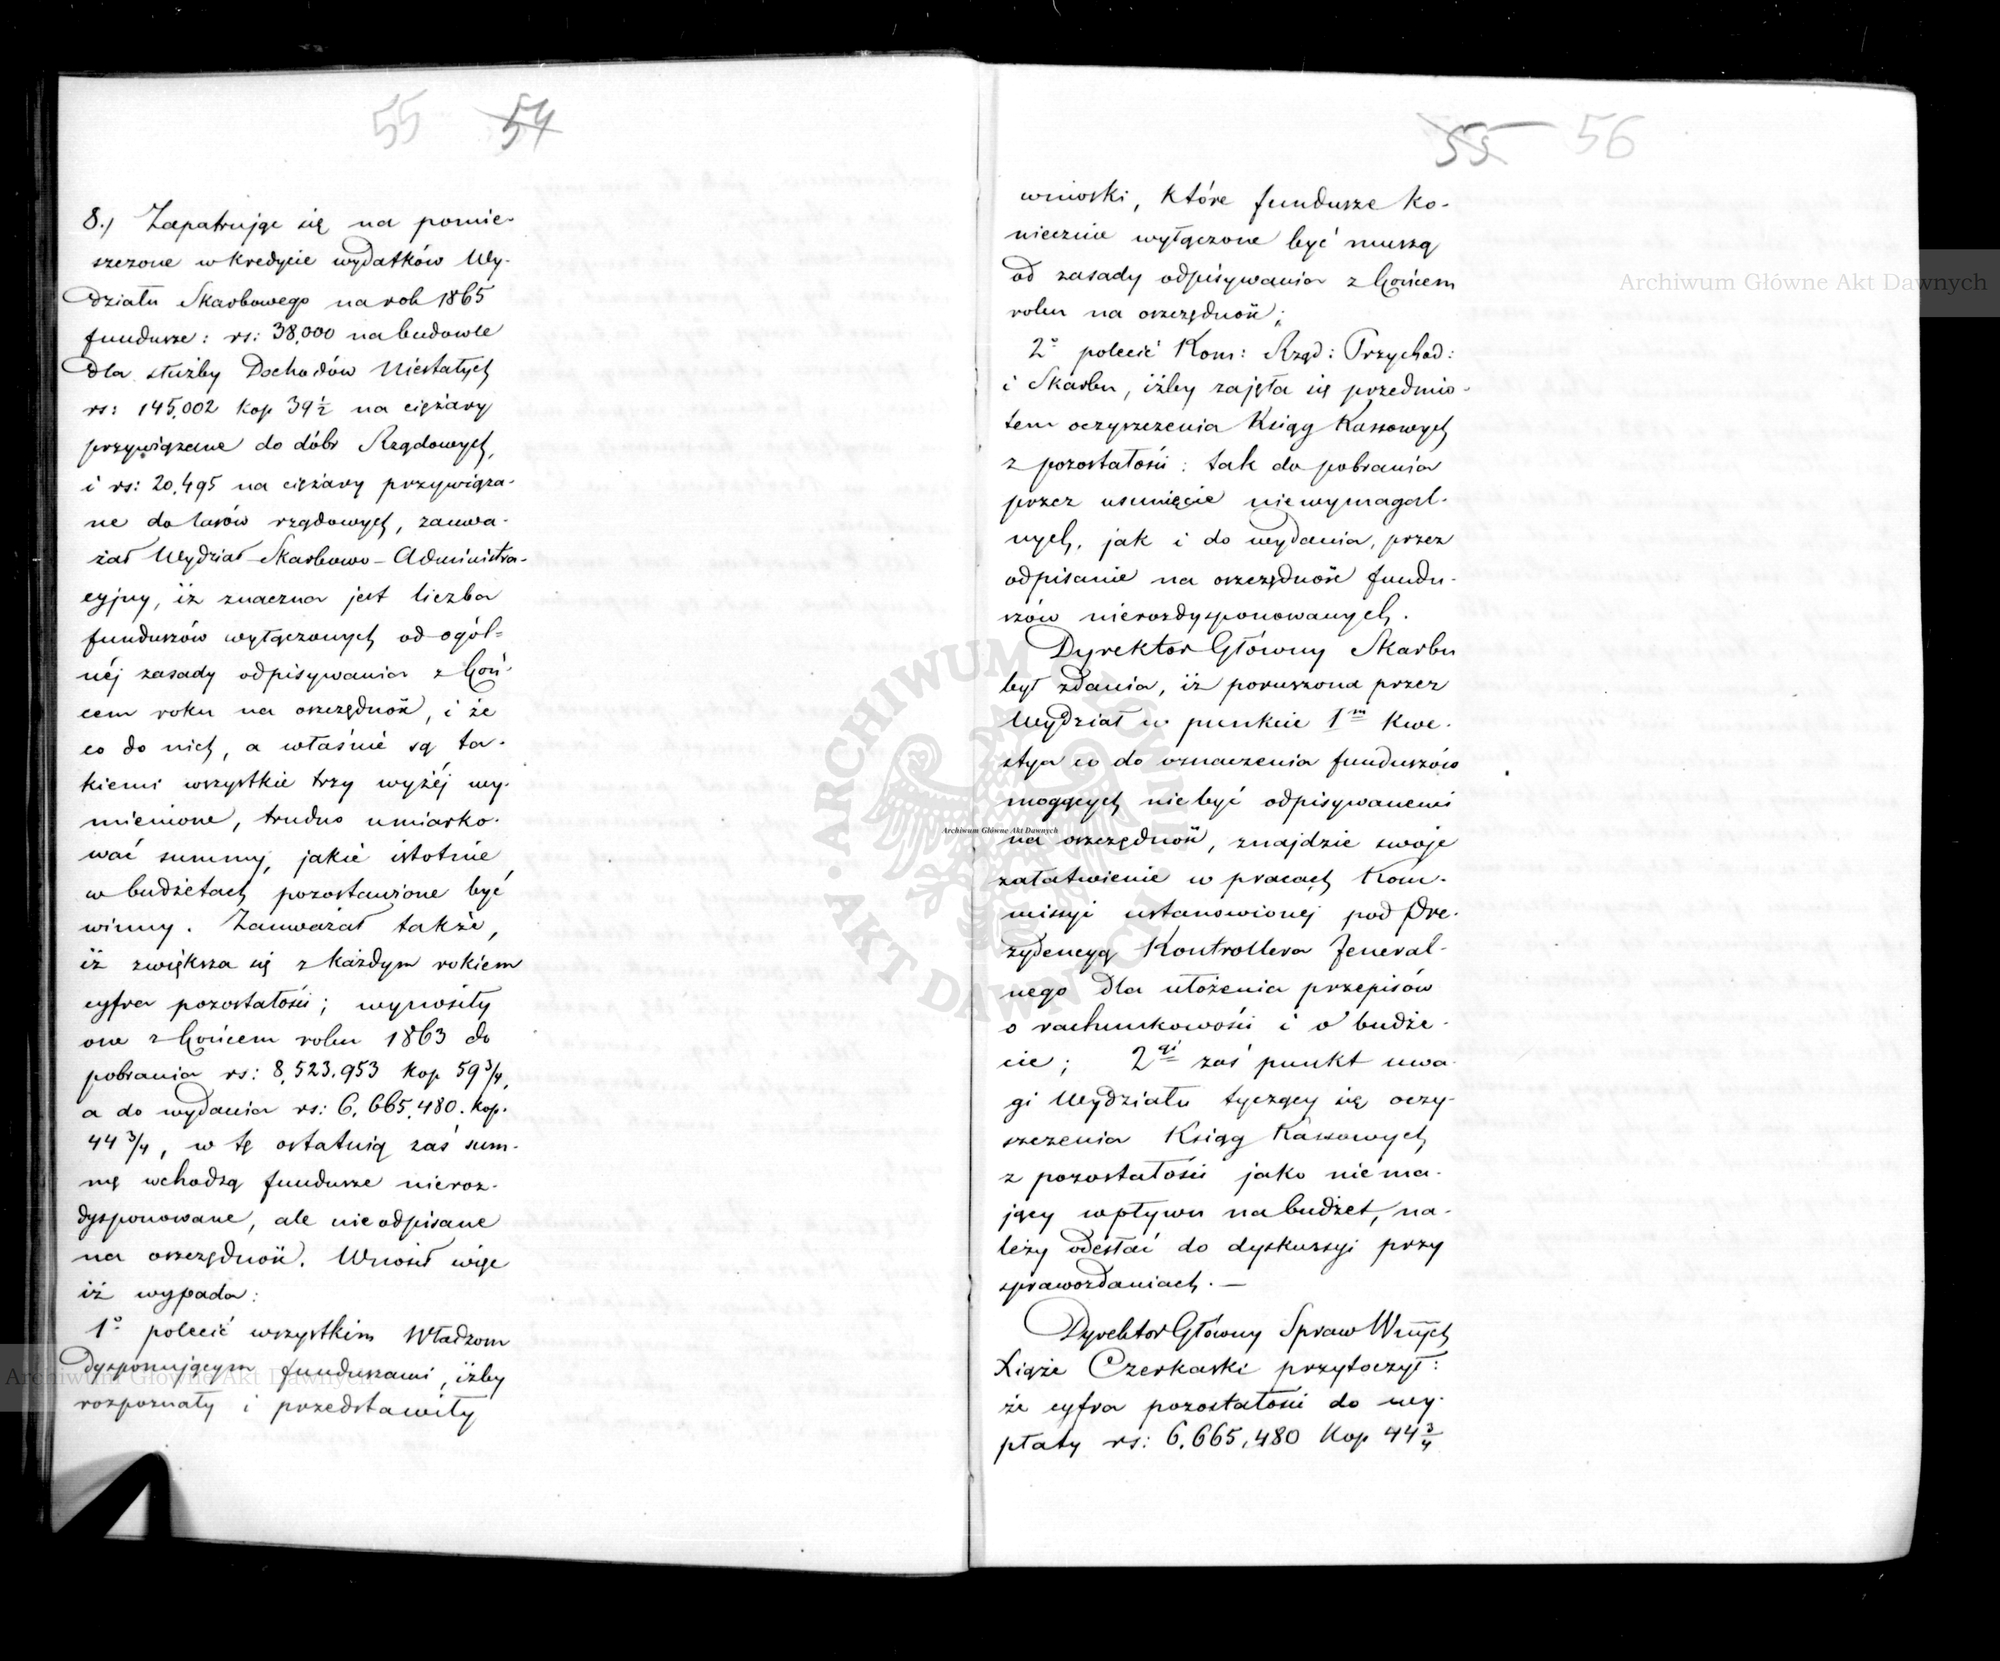 55 54
8.) Zapatrując się na pomie-
szczone w kredycie wydatków Wy-
działu Skarbowego na rok 1865
fundusze: rs: 38,000 na budowle
dla służby Dochodów Niestałych
rs: 145,002 kop 39½ na ciężary
przywiązane do dóbr Rządowych,
i rs: 20,495 na ciężary przywiąza-
ne do lasów rządowych, zauwa-
żał Wydział Skarbowo-Administra-
cyjny, iż znaczna jest liczba
funduszów wyłączonych od ogól=
néj zasady odpisywania z koń-
cem roku na oszczędność, i że
co do nich, a właśnie są ta-
kiemi wszystkie trzy wyżéj wy-
mienione, trudno umiarko-
wać summy, jakie istotnie
w budżetach pozostawione być
winny. Zauważał także,
iż zwiększa się z każdym rokiem
cyfra pozostałości; wynosiły
one z końcem roku 1863 do
pobrania rs: 8,523,953 kop 59¾,
a do wydania rs: 6,665,480. kop.
44¾, w tę ostatnią zaś sum-
mę wchodzą fundusze nieroz-
dysponowane, ale nieodpisane
na oszczędność. Wniósł więc
iż wypada:
1° polecić wszystkim Władzom
dysponującym funduszami, iżby
rozpoznały i przedstawiły
55 56
wnioski, które fundusze ko-
niecznie wyłączone być muszą
od zasady odpisywania z końcem
roku na oszczędność;
2° polecić Kom: Rząd: Przychod:
i Skarbu, iżby zajęła się przedmio-
tem oczyszczenia Ksiąg Kassowych
z pozostałości: tak do pobrania
przez usunięcie niewymagal-
nych, jak i do wydania, przez
odpisanie na oszczędność fundu-
szów nierozdysponowanych.
Dyrektor Główny Skarbu
był zdania, iż poruszona przez
Wydział w punkcie 1m kwe-
stya co do oznaczenia funduszów
mogących niebyć odpisywanemi
na oszczędność, znajdzie swoje
załatwienie w pracach Kom-
missyi ustanowionej pod Pre-
zydencyą Kontrollera Jeneral-
nego dla ułożenia przepisów
o rachunkowości i o budże-
cie; 2gi zaś punkt uwa-
gi Wydziału tyczący się oczy-
szczenia Ksiąg Kassowych
z pozostałości jako niema-
jący wpływu na budżet, na-
leży odesłać do dyskussyi przy
sprawozdaniach. —
Dyrektor Główny Spraw Wnych
Xiąże Czerkaski przytoczył:
że cyfra pozostałości do wy-
płaty rs: 6,665,480 kop 44¾
Archiwum Główne Akt Dawnych
Archiwum Główne Akt Dawnych
Archiwum Główne Akt Dawnych
· ARCHIWUM GŁÓWNE · AKT DAWNYCH